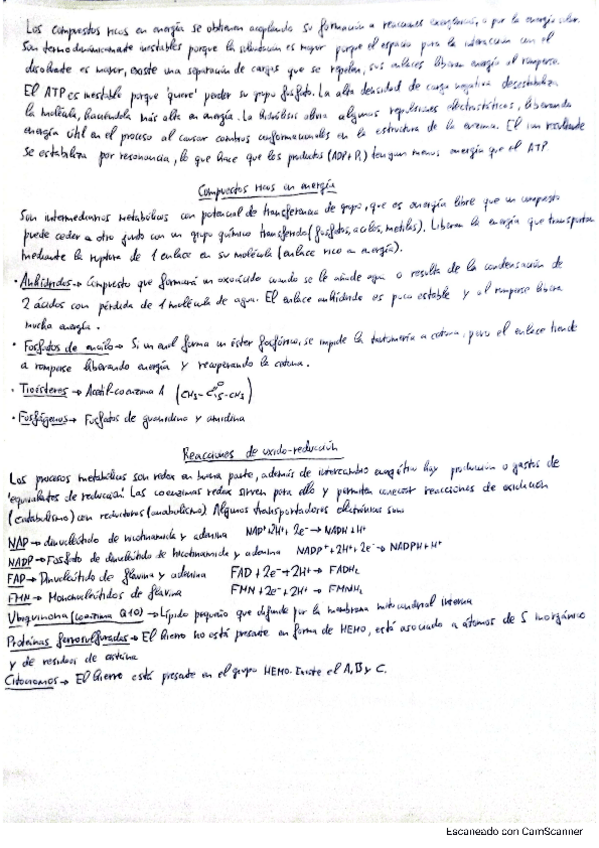 Los compuestos ricos en energía se obtienen acoplando su formación a reacciones exergónicas, o por la energía solar.
Son termodinámicamente inestables porque la solvatación es mayor porque el espacio para la interacción con el
disolvente es mayor, existe una separación de cargas que se repelen, sus enlaces liberan energía al romperse.
El ATP es inestable porque 'quiere' perder su grupo fosfato. La alta densidad de carga negativa desestabiliza
la molécula, haciéndola más alta en energía. La hidrólisis alivia algunas repulsiones electrostáticas, liberando
energía útil en el proceso al causar cambios conformacionales en la estructura de la enzima. El ion resultante
se estabiliza por resonancia, lo que hace que los productos (ADP+Pi) tengan menos energía que el ATP.
Compuestos ricos en energía
Son intermediarios metabólicos con potencial de transferencia de grupo, que es energía libre que un compuesto
puede ceder a otro junto con un grupo químico transferido (fosfatos, acilos, metilos). Liberan la energía que transportan
mediante la ruptura de 1 enlace en su molécula (enlace rico en energía).
· Anhídridos → Compuesto que formará un oxoácido cuando se le añade agua o resulta de la condensación de
2 ácidos con pérdida de 1 molécula de agua. El enlace anhídrido es poco estable y al romperse libera
mucha energía.
· Fosfatos de enoilo → Si un enol forma un éster fosfórico, se impide la tautomería a cetona, pero el enlace tiende
a romperse liberando energía y recuperando la cetona.
· Tioésteres → Acetil-coenzima A (CH3-C=O-S-CH3)
· Fosfágenos → Fosfatos de guanidina y amidina
Reacciones de oxido-reducción
Los procesos metabólicos son redox en buena parte, además de intercambio energético hay producción o gastos de
'equivalentes de reducción'. Las coenzimas redox sirven para ello y permiten conectar reacciones de oxidación
(catabolismo) con reductoras (anabolismo). Algunos transportadores electrónicos son:
NAD → dinucleótido de nicotinamida y adenina NAD+ +2H+ + 2e- → NADH+H+
NADP → Fosfato de dinucleótido de nicotinamida y adenina NADP+ +2H+ +2e- → NADPH+H+
FAD → Dinucleótido de flavina y adenina FAD + 2e- + 2H+ → FADH2
FMN → Mononucleótidos de flavina FMN + 2e- + 2H+ → FMNH2
Ubiquinona (coenzima Q10) → Lípido pequeño que difunde por la membrana mitocondrial interna
Proteínas ferrosulfuradas → El hierro no está presente en forma de HEMO, está asociado a átomos de S inorgánico
y de residuos de cisteína
Citocromos → El hierro está presente en el grupo HEMO. Existe el A, B y C.
Escaneado con CamScanner